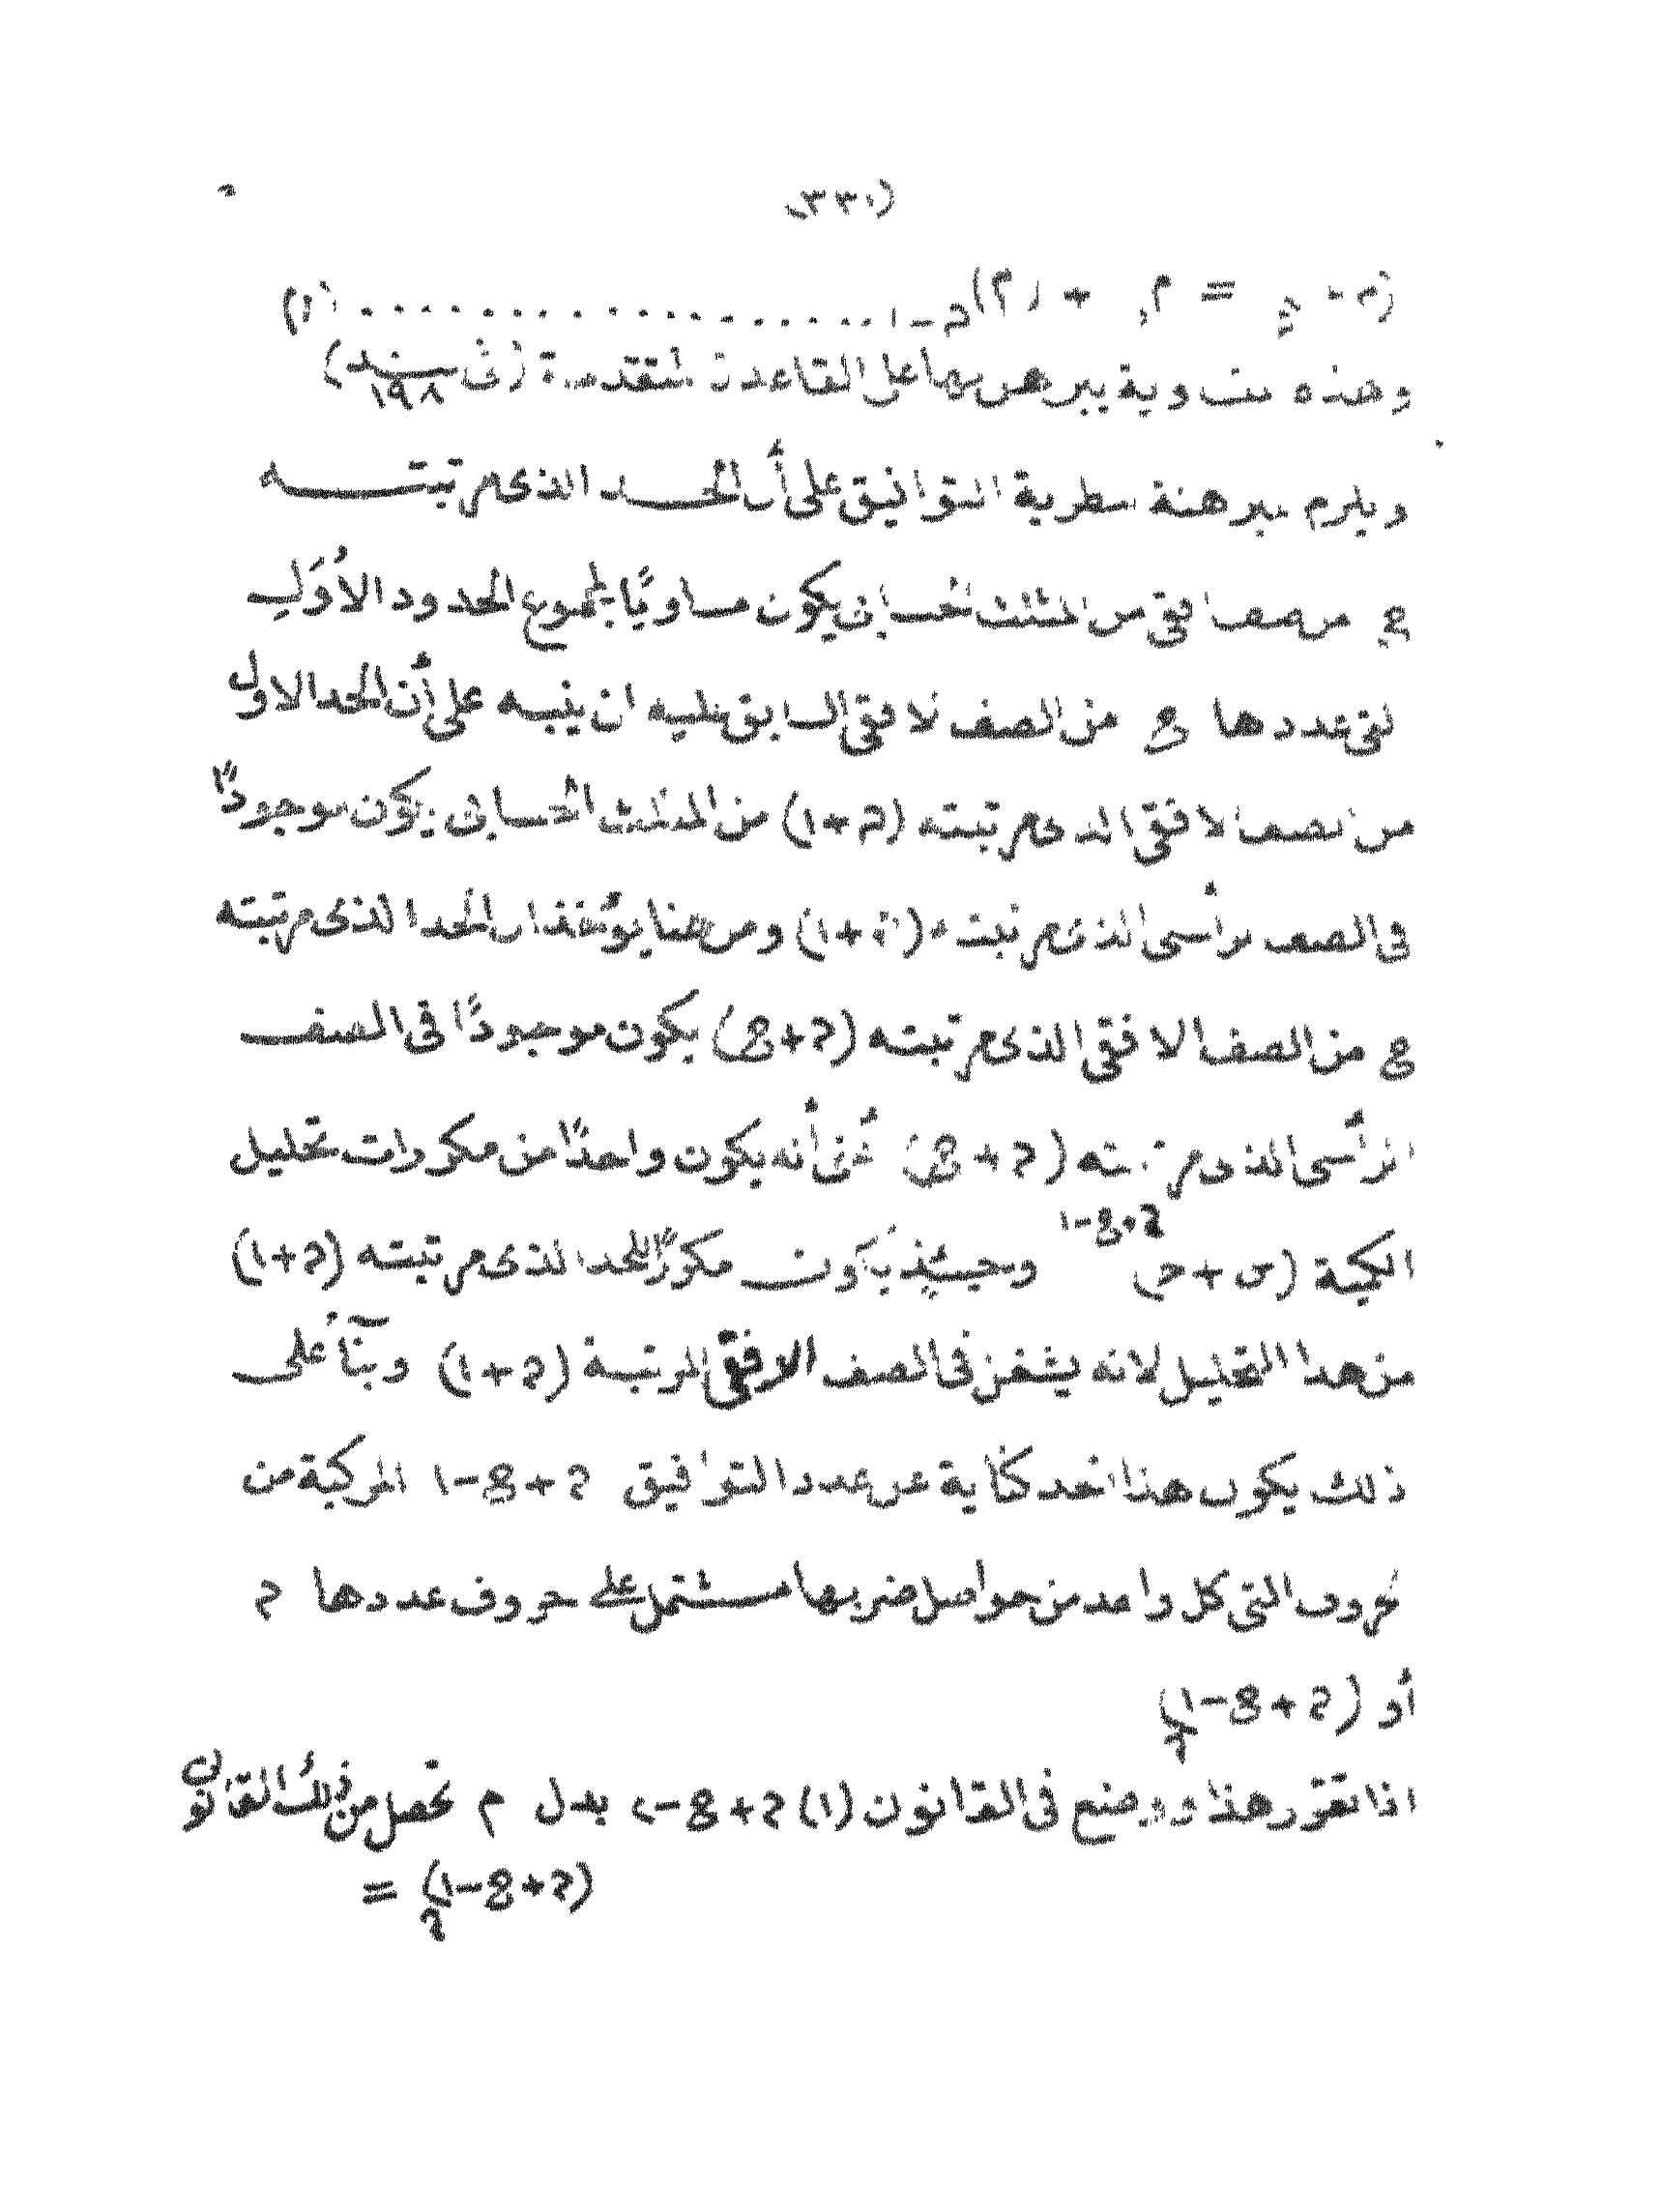 (٣٣٠)
(م+١)  =  م  +  (م)  ح-١ ..................... (١)
وهذه متساوية يبرهن بها على القاعدة المتقدمة (في بند ١٩٨)
ويلزم لبرهنة نظرية التوافيق على أن الحد الذى مرتبته
ع من صف افقى من المثلث الحسابى يكون مساويًا لمجموع الحدود الأوَلِ
التى عددها ع من الصف الافقى السابق عليه ان ينبه على أن الحد الاول
من الصف الافقى الذى مرتبته (ح+١) من المثلث الحسابى يكون موجودًا
فى الصف الرأسى الذى مرتبته (ح+١) ومن هنا يؤخذ ان الحد الذى مرتبته
ع من الصف الافقى الذى مرتبته (ح+ع) يكون موجودًا فى الصف
الرأسى الذى مرتبته (ح+ع) أعنى أنه يكون واحدًا من مكررات تحليل
الكمية (س+ح) ح+ع-١ وحينئذ يكون مكررًا للحد الذى مرتبته (ح+١)
من هذا التحليل لانه يشغل فى الصف الافقى المرتبة (ح+١) وبنآءً على
ذلك يكون هذا الحد كناية عن عدد التوافيق ح+ع-١ المركبة من
الحروف التى كل واحد من حواصل ضربها مشتمل على حروف عددها ح
أو (ح+ع-١)ح
اذا تقرر هذا ووضع فى القانون (١) ح+ع-١ بدل م تحصل من ذلك القانون
(ح+ع-١)ح =